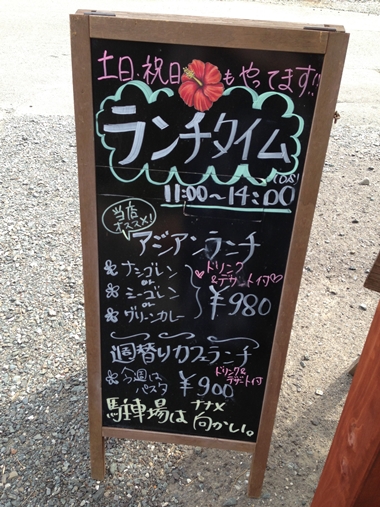 土日・祝日もやってます!!
ランチタイム
11:00〜14:00
(O.S)
当店
オススメ!
アジアンランチ
ナシゴレン
or
ミーゴレン
or
グリーンカレー
ドリンク
&デザート付
¥980
週替りカフェランチ
今週は
パスタ
¥900
ドリンク&
デザート付
駐車場はナナメ向かい。